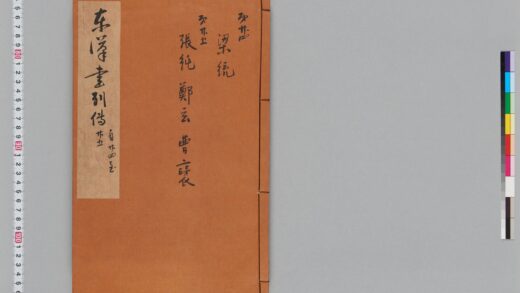 第廿四
梁統
第廿五
張純 鄭玄 曹褒
東漢書列傳
自廿四至
廿五